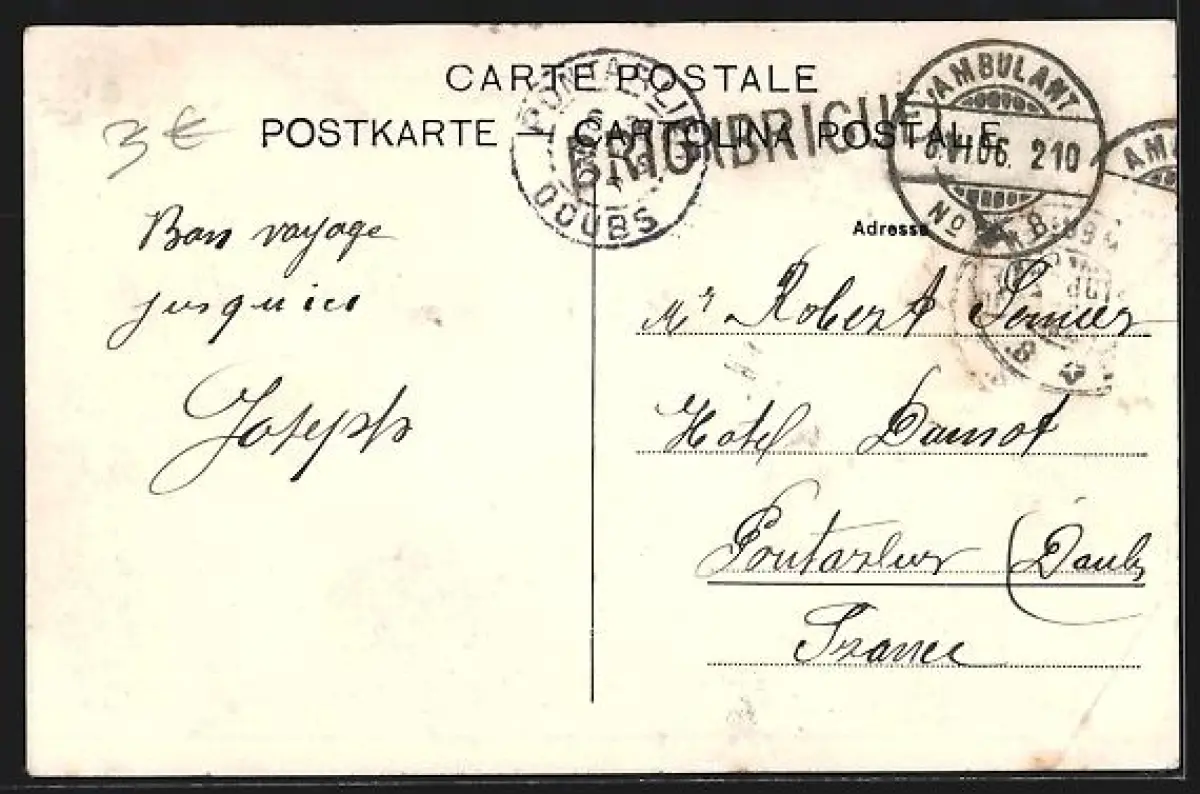 CARTE POSTALE
POSTKARTE — CARTOLINA POSTALE
PONTARLIER
DOUBS
BRIG BRIGUE
AMBULANT
6.VI.06. 210
No 8
AMB
3 €
Bon voyage
jusqu'ici
Joseph
Adresse
Mr Robert
Hôtel
Pontarlier (Doubs
France